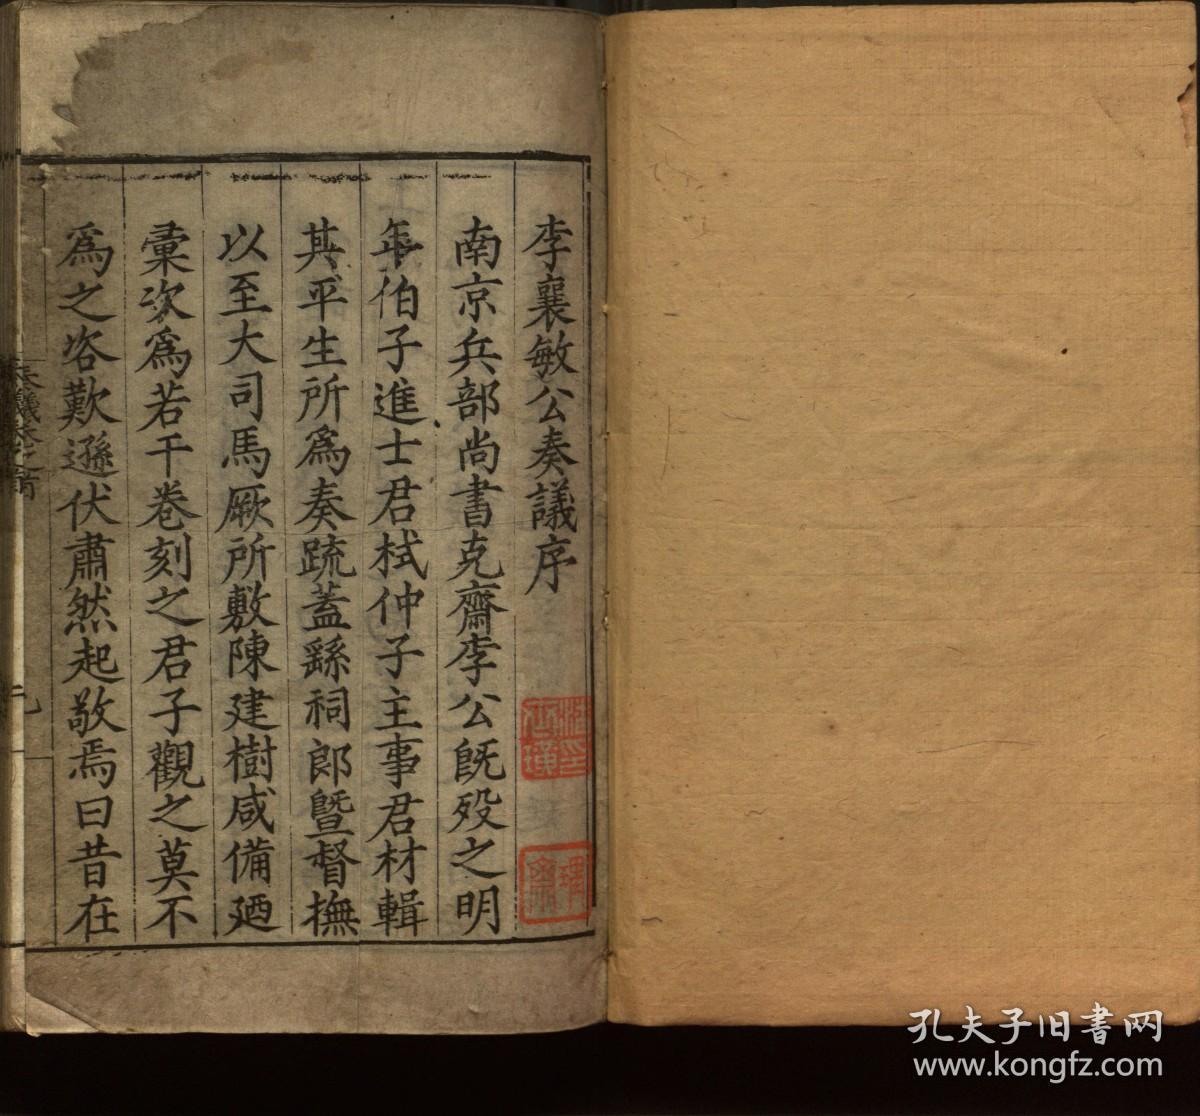 李襄敏公奏議序
南京兵部尚書克齋李公旣歿之明
年伯子進士君栻仲子主事君材輯
其平生所爲奏疏蓋繇祠郎曁督撫
以至大司馬厥所敷陳建樹咸備廼
彙次爲若干卷刻之君子觀之莫不
爲之咨歎遜伏肅然起敬焉曰昔在
孔夫子旧书网
www.kongfz.com